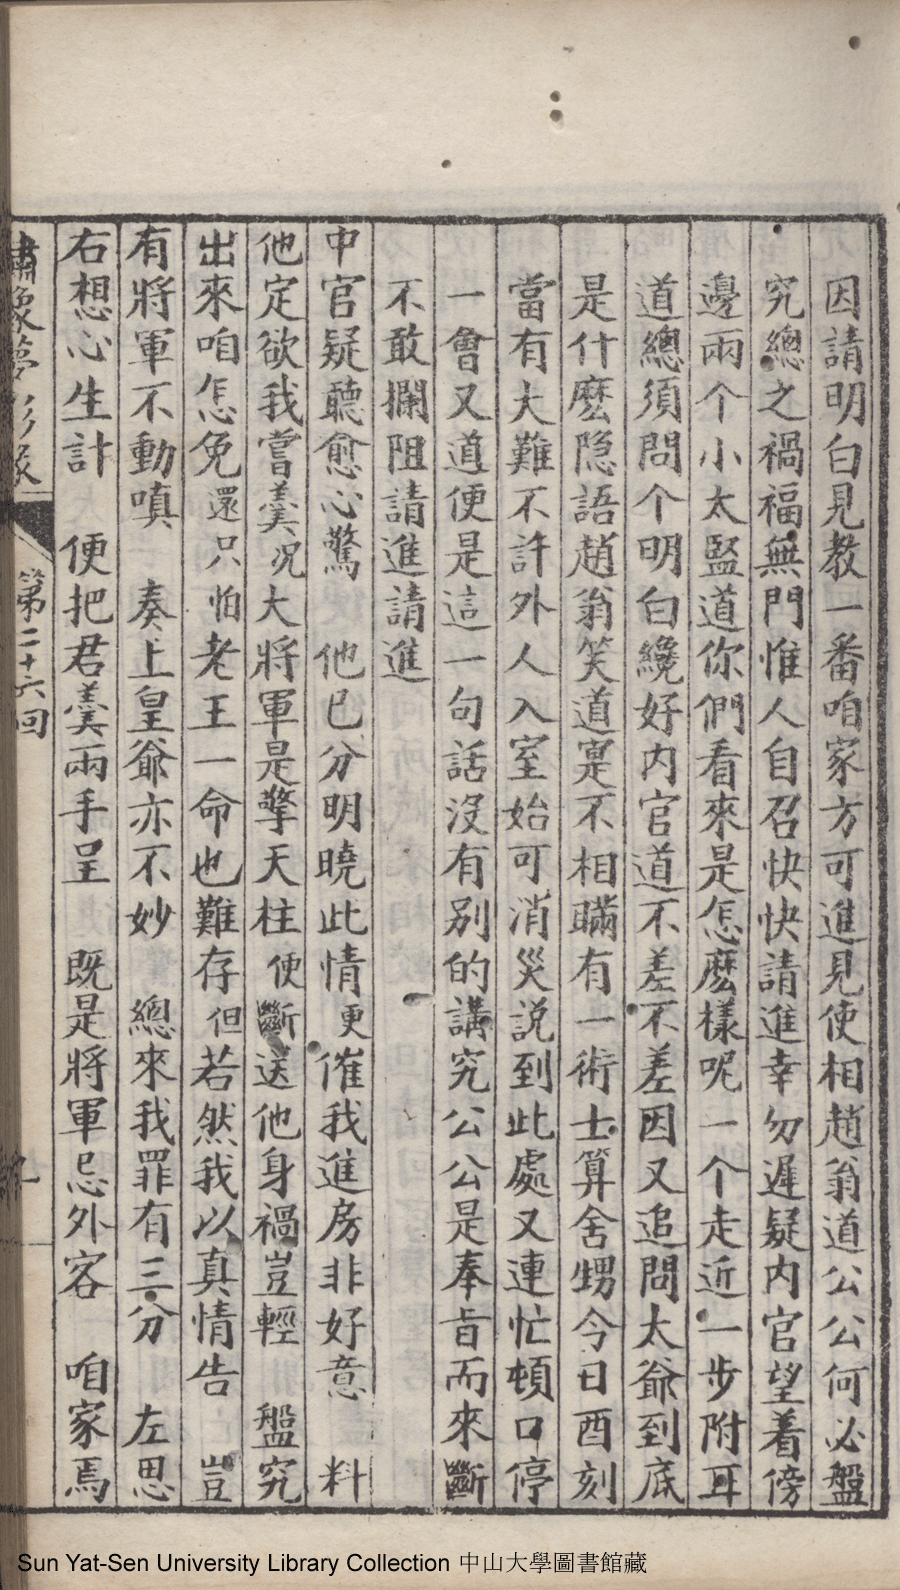 因請明白見教一番咱家方可進見使相趙翁道公公何必盤
究總之禍福無門惟人自召快快請進幸勿遲疑内官望着傍
邊兩个小太監道你們看來是怎麽樣呢一个走近一步附耳
道總須問个明白纔好内官道不差不差因又追問太爺到底
是什麽隐語趙翁笑道寔不相瞞有一術士算舍甥今日酉刻
當有大難不許外人入室始可消災説到此處又連忙頓口停
一會又道便是這一句話没有别的講究公公是奉旨而來斷
不敢攔阻請進請進
中官疑聽愈心驚 他已分明曉此情更催我進房非好意 料
他定欲我嘗羹况大將軍是擎天柱便斷送他身禍豈輕 盤究
出來咱怎免還只怕老王一命也難存但若然我以真情告 豈
有將軍不動嗔 奏上皇爺亦不妙 總來我罪有三分 左思
右想心生計 便把君羹兩手呈 既是將軍忌外客 咱家焉
繡像夢影緣 第二十六回 九
Sun Yat-Sen University Library Collection 中山大學圖書館藏